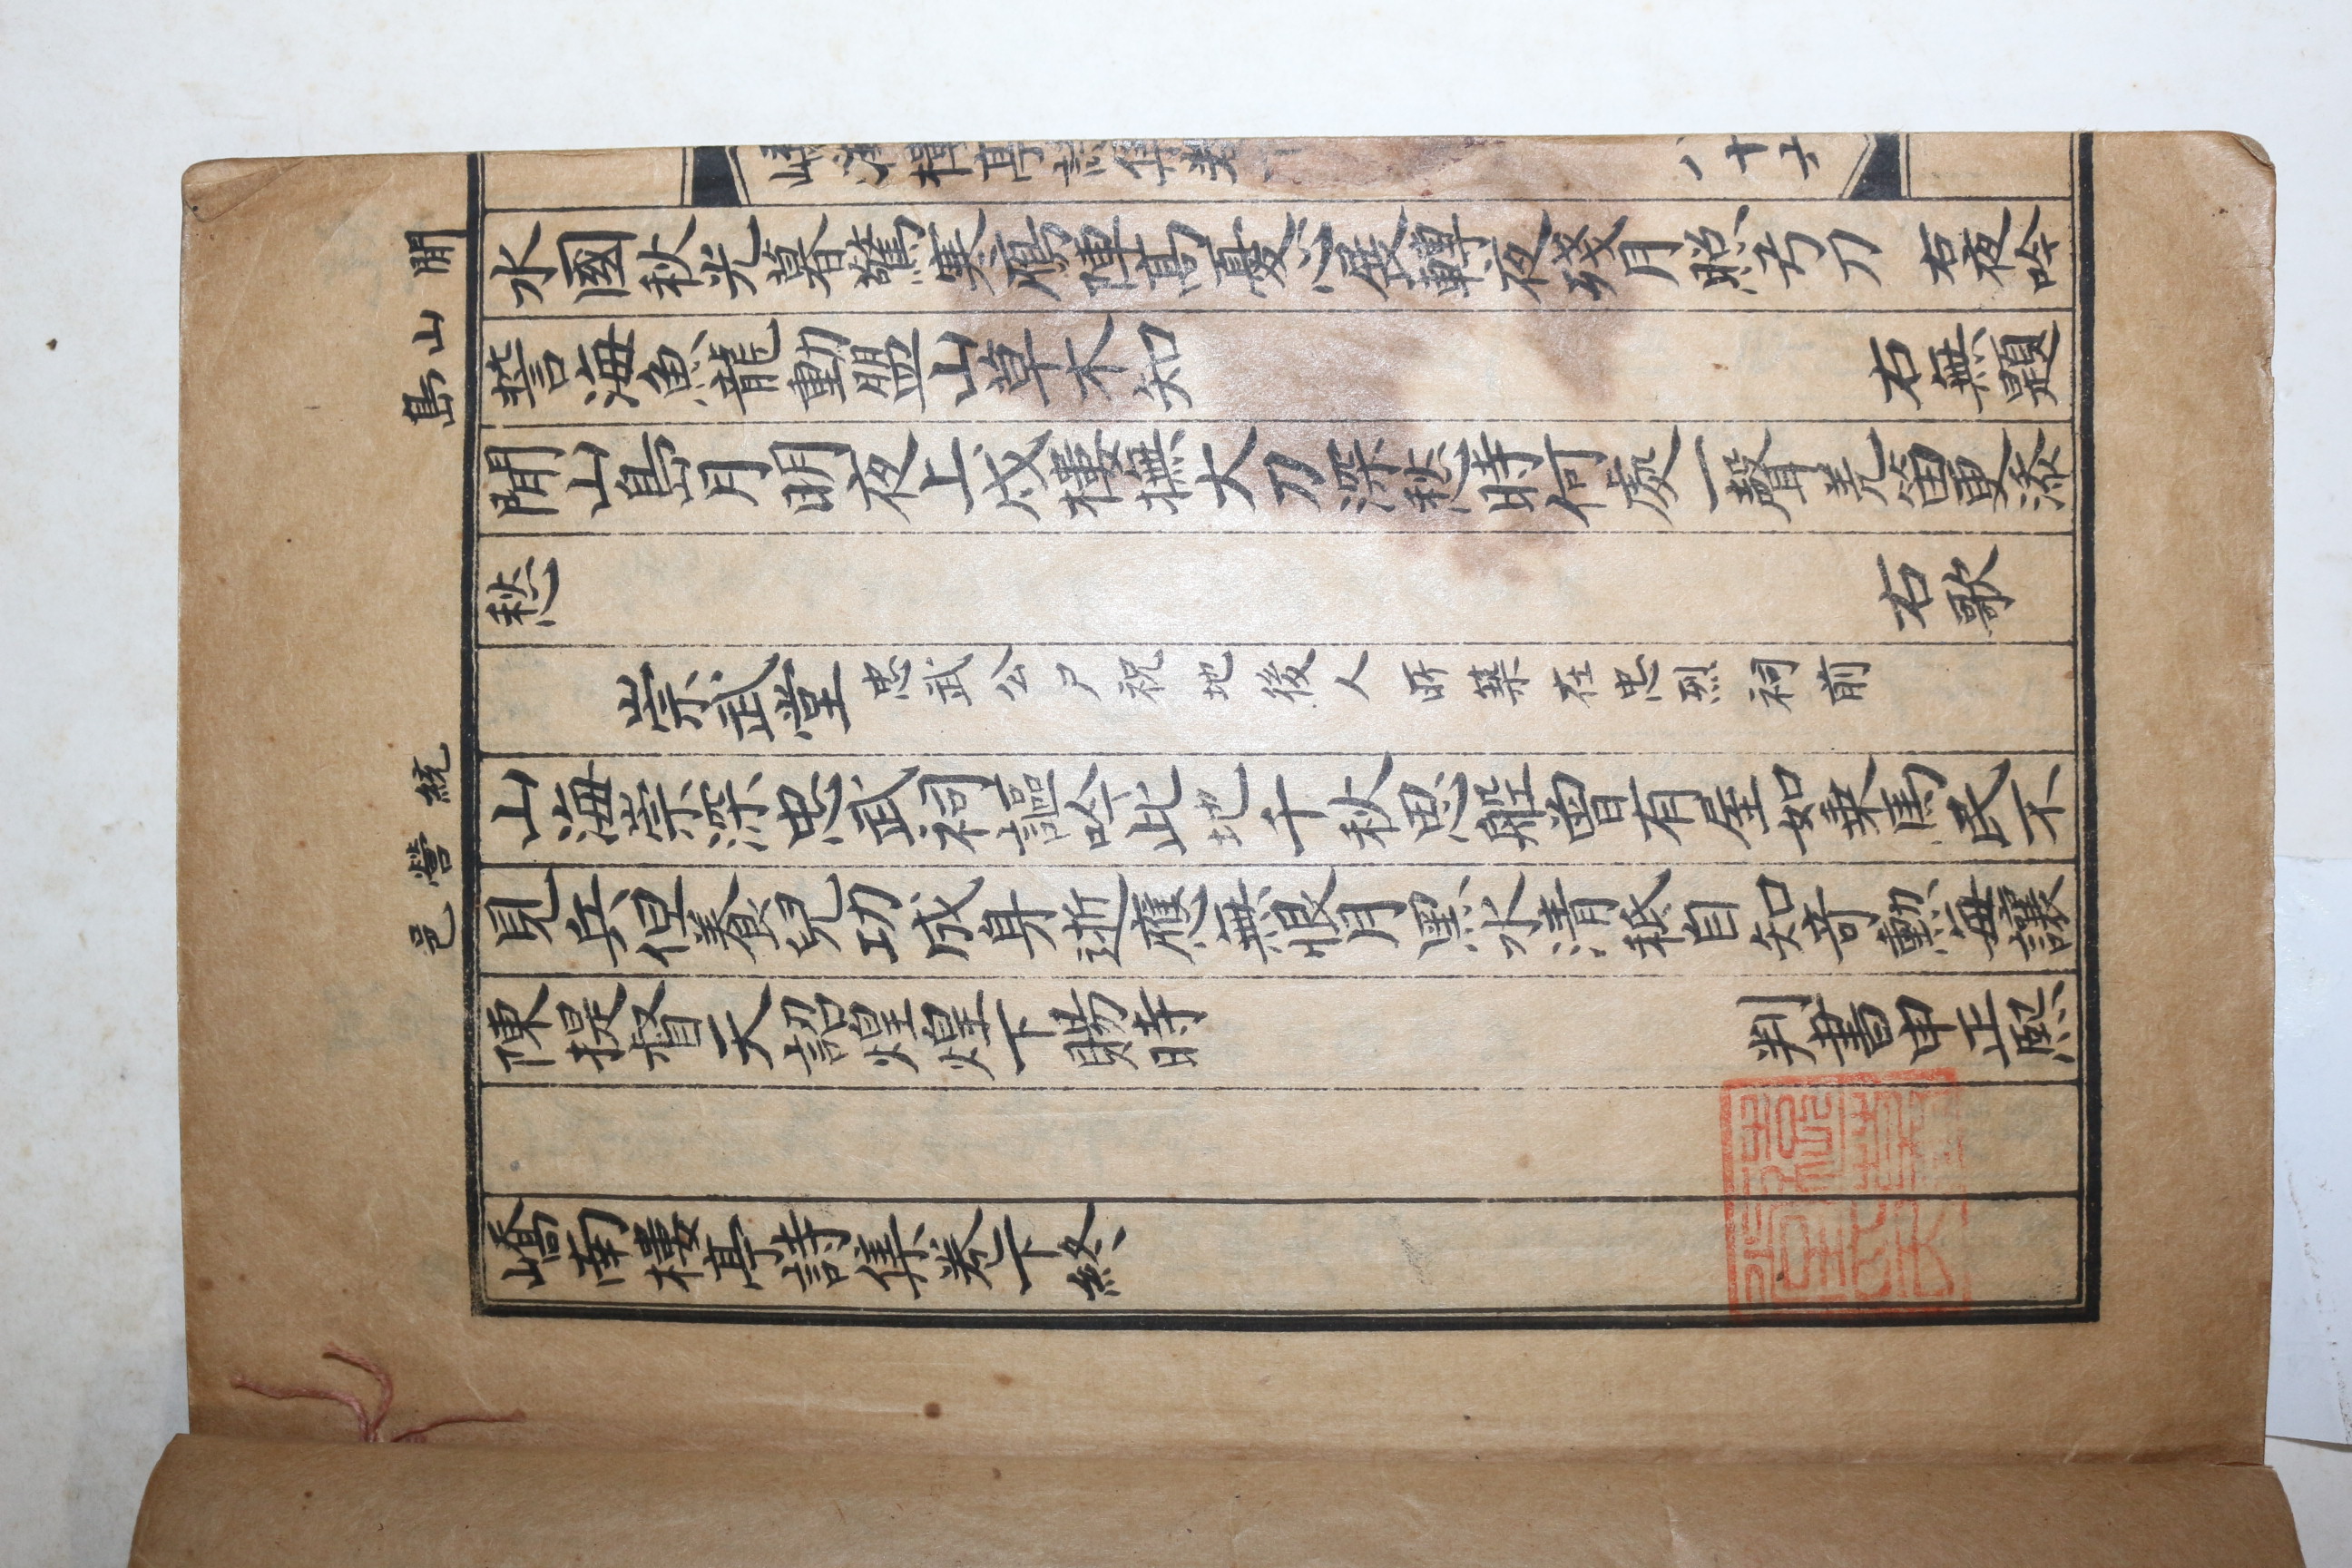 閒山島
統營邑
水國秋光暮驚寒鴈陣高憂心展轉夜殘月照弓刀 右夜吟
誓海魚龍動盟山草木知 右無題
閒山島月明夜上戍樓撫大刀深愁時何處一聲羌笛更添
愁 右歌
崇武堂 忠武公尸祝地後人所築在忠烈祠前
山海崇深忠武祠謳吟此地千秋思船曾有屋如乗馬民不
見兵但養兒功成身逝應無恨月黑水清秪自知奇勲每讓
陳提督天詔煌煌下賜時 判書申正熙
嶠南樓亭詩集巻下終
嶠南樓亭詩集巻下 八十六